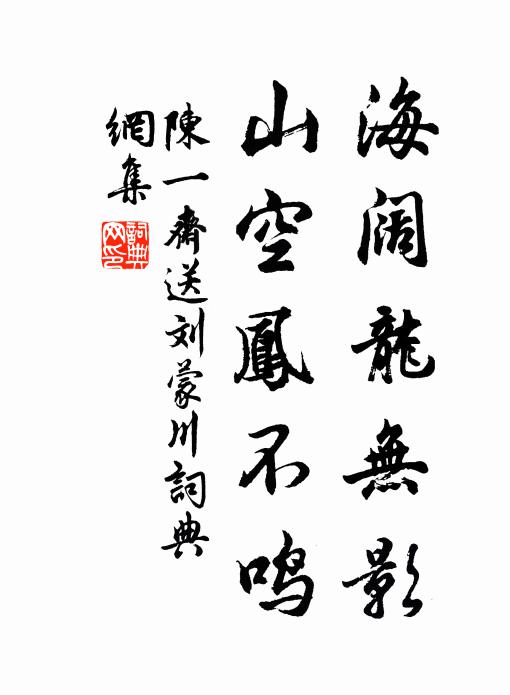 海阔龍無影
山空鳳不鸣
陳一齋送刘蒙川詞典
網集
詞典
网印